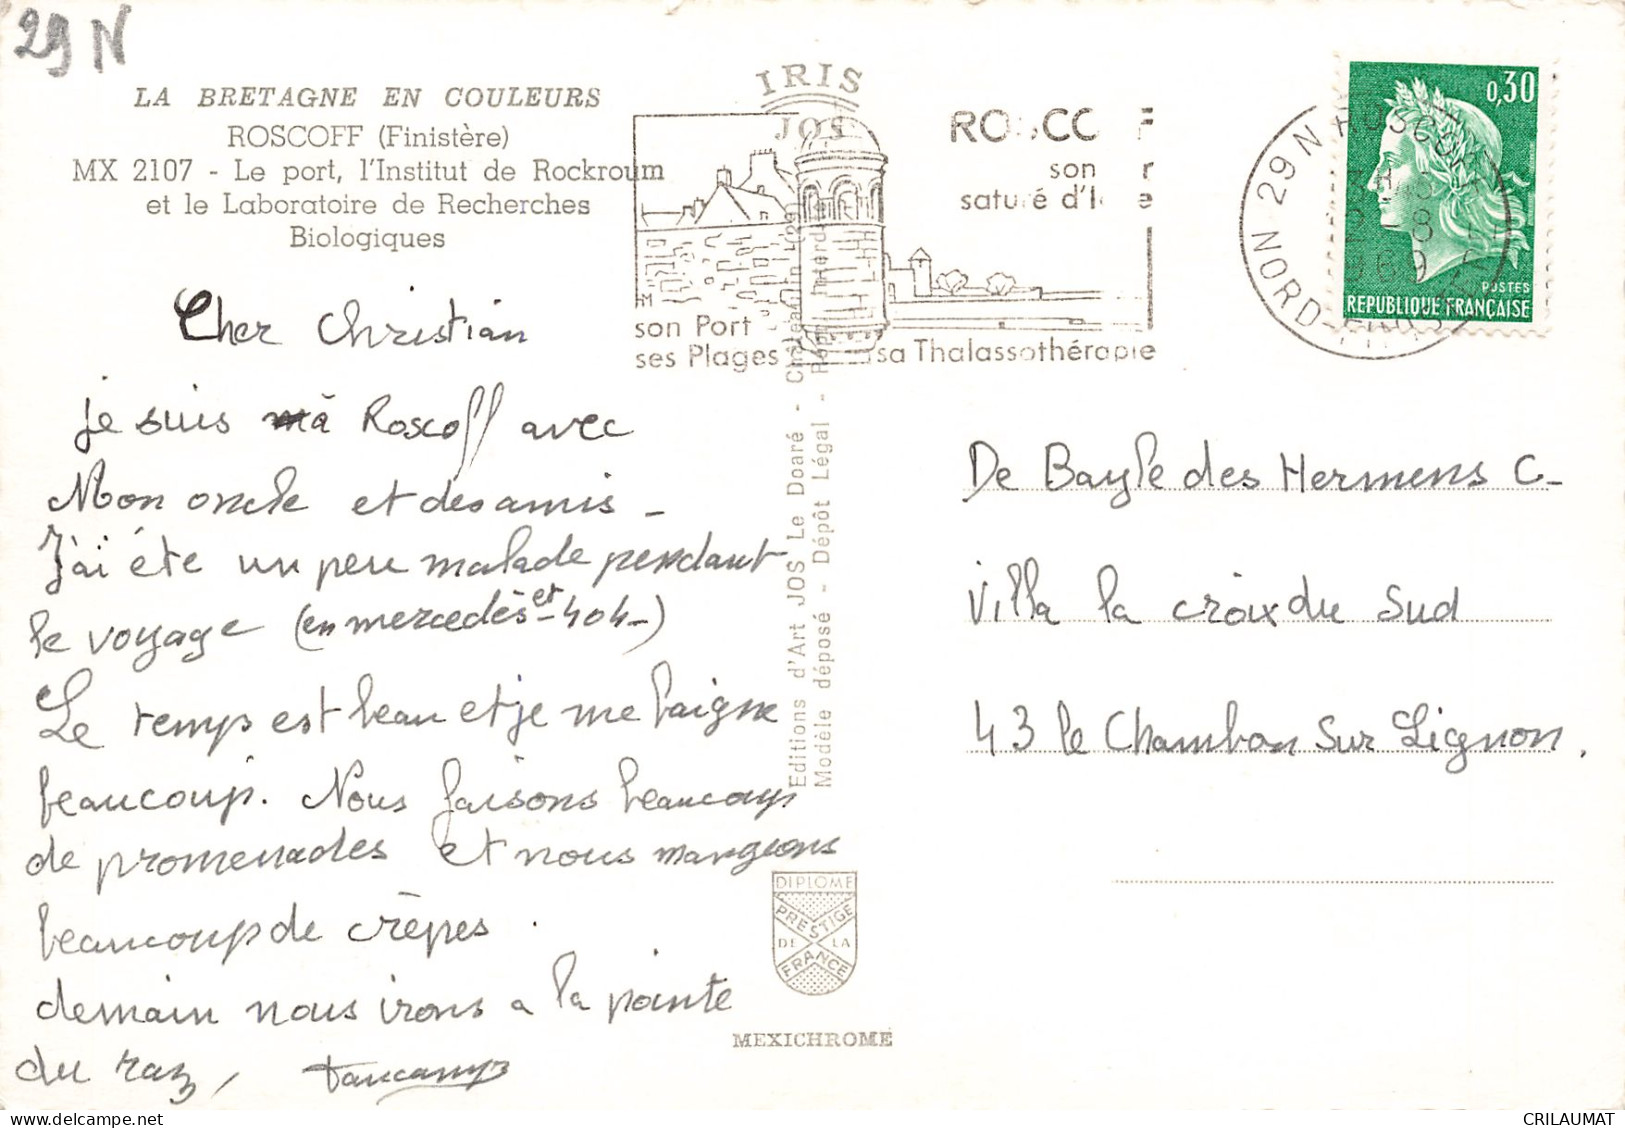 29 N
LA BRETAGNE EN COULEURS
ROSCOFF (Finistère)
MX 2107 - Le port, l'Institut de Rockroum
et le Laboratoire de Recherches
Biologiques
IRIS
JOS
ROSCOFF
son
saturé d'
son Port
ses Plages
sa Thalassothérapie
29 N ROSCOFF
2-8
NORD-FINISTERE
0,30
POSTES
REPUBLIQUE FRANÇAISE
Cher Christian
je suis à Roscoff avec
Mon oncle et des amis -
J'ai été un peu malade pendant
le voyage (en mercedès et - 404 -)
Le temps est beau et je me baigne
beaucoup. Nous faisons beaucoup
de promenades et nous mangeons
beaucoup de crêpes.
demain nous irons a la pointe
du raz,
Editions d'Art JOS Le Doaré - Châteaulin (29)
Modèle déposé - Dépôt Légal -
De Bayle des Hermens C-
Villa la croix du Sud
43 le Chambon Sur Lignon.
DIPLOME
PRESTIGE
DE LA
FRANCE
MEXICHROME
CRILAUMAT